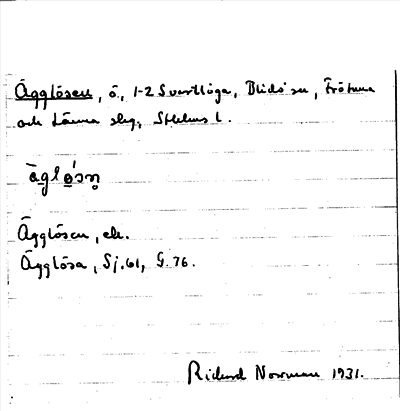 Ägglösen, ö, 1-2 Svartlöga, Blidö sn, Frötuna
och Länna slg, Sthlms l.
Ägglösen, ek.
Ägglösa, Sj.61, G.76.
Rickard Norrman 1931.